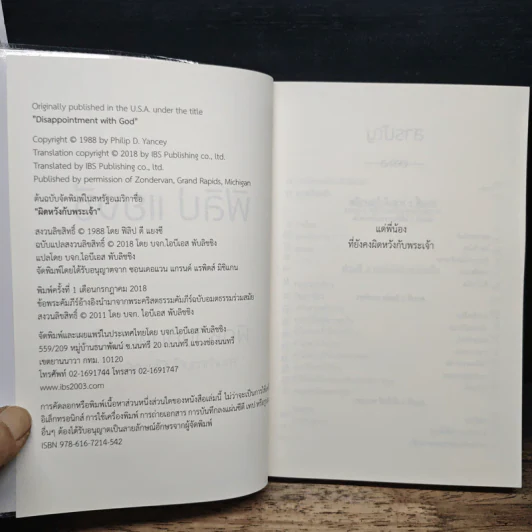 Originally published in the U.S.A. under the title
"Disappointment with God"
Copyright © 1988 by Philip D. Yancey
Translation copyright © 2018 by IBS Publishing co., ltd.
Translated by IBS Publishing co., ltd.
Published by permission of Zondervan, Grand Rapids, Michigan
ต้นฉบับจัดพิมพ์ในสหรัฐอเมริกาชื่อ
"ผิดหวังกับพระเจ้า"
สงวนลิขสิทธิ์ © 1988 โดย ฟิลิป ดี แยงซี
ฉบับแปลสงวนลิขสิทธิ์ © 2018 โดย บจก.ไอบีเอส พับลิชชิง
แปลโดย บจก.ไอบีเอส พับลิชชิง
จัดพิมพ์โดยได้รับอนุญาตจาก ซอนเดอแวน แกรนด์ แรพิดส์ มิชิแกน
พิมพ์ครั้งที่ 1 เดือนกรกฎาคม 2018
ข้อพระคัมภีร์อ้างอิงนำมาจากพระคริสตธรรมคัมภีร์ฉบับอมตธรรมร่วมสมัย
สงวนลิขสิทธิ์ © 2011 โดย บจก. ไอบีเอส พับลิชชิง
จัดพิมพ์และเผยแพร่ในประเทศไทยโดย บจก.ไอบีเอส พับลิชชิง
559/209 หมู่บ้านธนาพัฒน์ ซ.นนทรี 20 ถ.นนทรี แขวงช่องนนทรี
เขตยานนาวา กทม. 10120
โทรศัพท์ 02-1691744 โทรสาร 02-1691747
www.ibs2003.com
การคัดลอกหรือพิมพ์เนื้อหาส่วนหนึ่งส่วนใดของหนังสือเล่มนี้ ไม่ว่าจะเป็นการใช้
อิเล็กทรอนิกส์ การใช้เครื่องพิมพ์ การถ่ายเอกสาร การบันทึกลงแผ่นซีดี เทป หรือ
อื่นๆ ต้องได้รับอนุญาตเป็นลายลักษณ์อักษรจากผู้จัดพิมพ์
ISBN 978-616-7214-542
แด่พี่น้อง
ที่ยังคงผิดหวังกับพระเจ้า